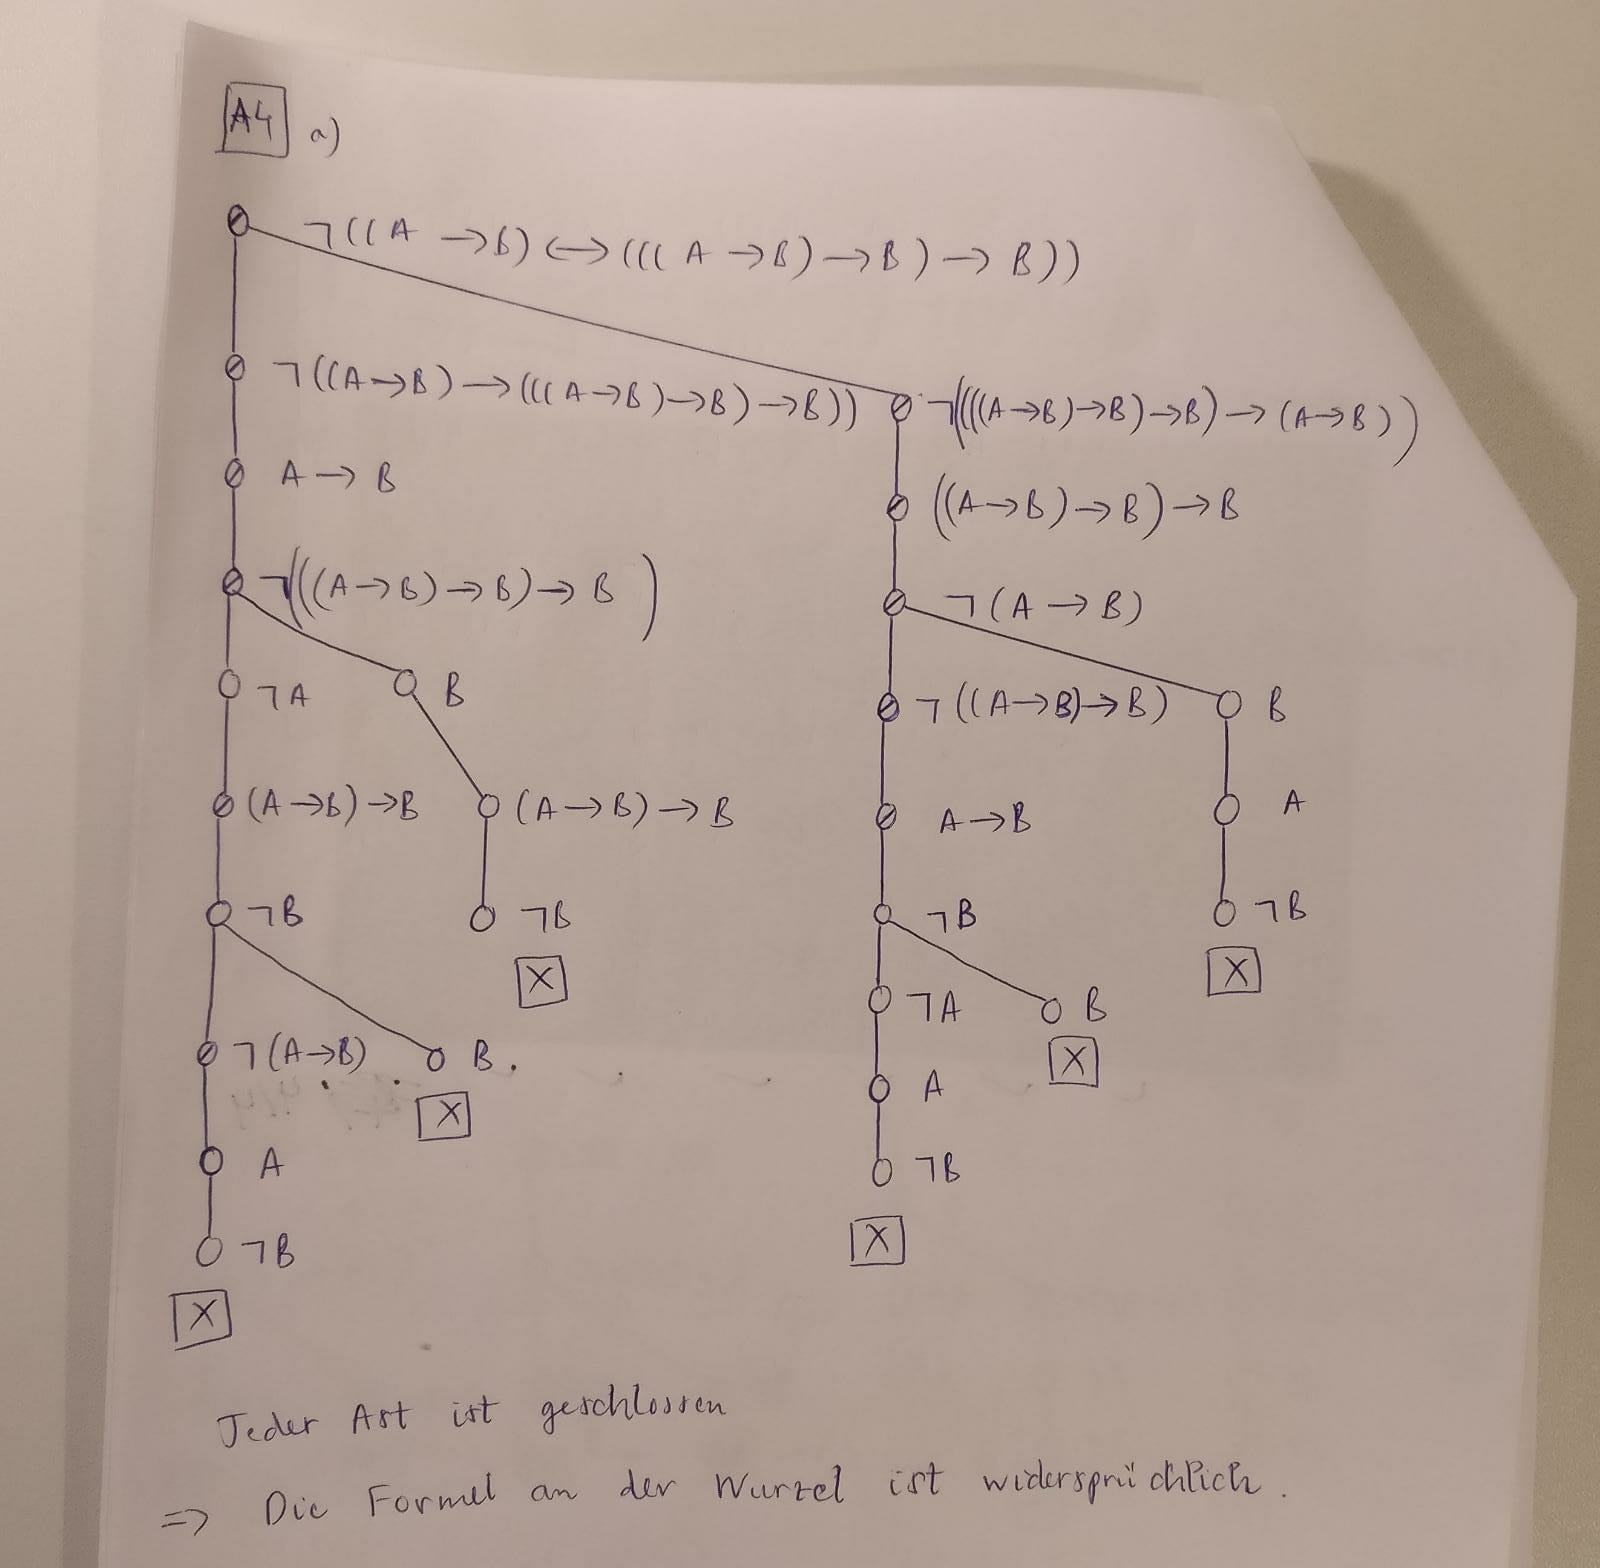 A4 a)
¬((A → B) ↔ (((A → B) → B) → B))
¬((A → B) → (((A → B) → B) → B))
¬((((A → B) → B) → B) → (A → B))
A → B
((A → B) → B) → B
¬(((A → B) → B) → B)
¬(A → B)
¬A
B
¬((A → B) → B)
B
(A → B) → B
(A → B) → B
A → B
A
¬B
¬B
¬B
¬B
X
X
¬A
B
¬(A → B)
B.
X
A
X
A
¬B
¬B
X
X
Jeder Ast ist geschlossen
=> Die Formel an der Wurzel ist widersprüchlich.